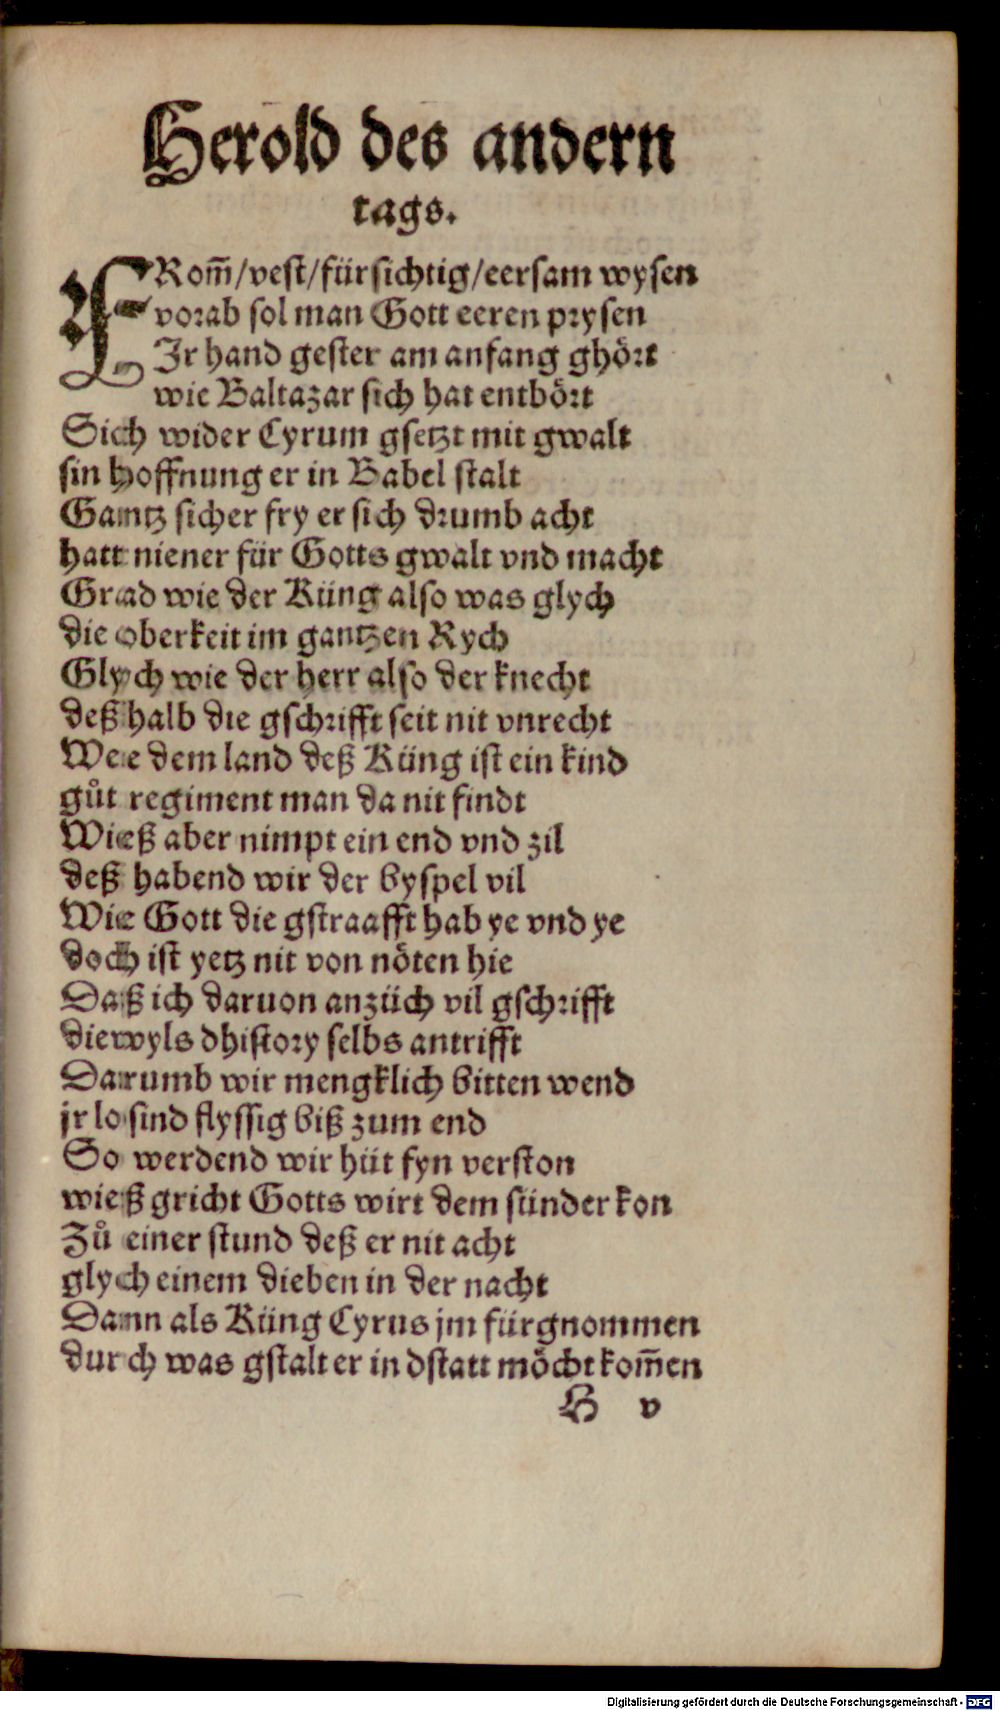 Herold des andern
tags.
FRom̄/vest/fürsichtig/eersam wysen
vorab sol man Gott eeren prysen
Jr hand gester am anfang ghört
wie Baltazar sich hat entbört
Sich wider Cyrum gsetzt mit gwalt
sin hoffnung er in Babel stalt
Gantz sicher fry er sich drumb acht
hatt niener für Gotts gwalt vnd macht
Grad wie der Küng also was glych
die oberkeit im gantzen Rych
Glych wie der herr also der knecht
deßhalb die gschrifft seit nit vnrecht
Wee dem land deß Küng ist ein kind
gůt regiment man da nit findt
Wieß aber nimpt ein end vnd zil
deß habend wir der byspel vil
Wie Gott die gstraafft hab ye vnd ye
doch ist yetz nit von nöten hie
Daß ich daruon anzüch vil gschrifft
diewyls dhistory selbs antrifft
Darumb wir mengklich bitten wend
jr losind flyssig biß zum end
So werdend wir hüt fyn verston
wieß gricht Gotts wirt dem sünder kon
Zů einer stund deß er nit acht
glych einem dieben in der nacht
Dann als Küng Cyrus jm fürgnommen
durch was gstalt er in dstatt möcht kom̄en
H v
Digitalisierung gefördert durch die Deutsche Forschungsgemeinschaft - DFG